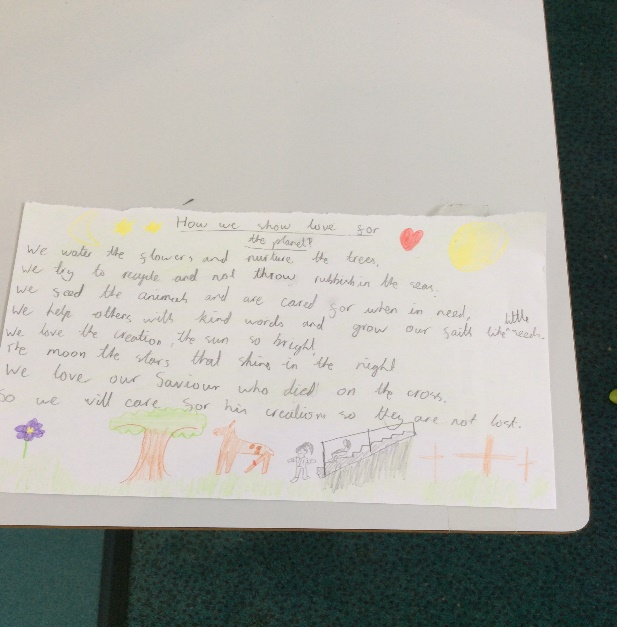 How we show love for
the planet?
We water the flowers and nurture the trees,
We try to recycle and not throw rubbish in the sea.
We feed the animals and are cared for when in need,
We help others with kind words and grow our faith like little seeds.
We love the creation, the sun so bright,
The moon the stars that shine in the night
We love our Saviour who died on the cross,
So we will care for his creation so they are not lost.